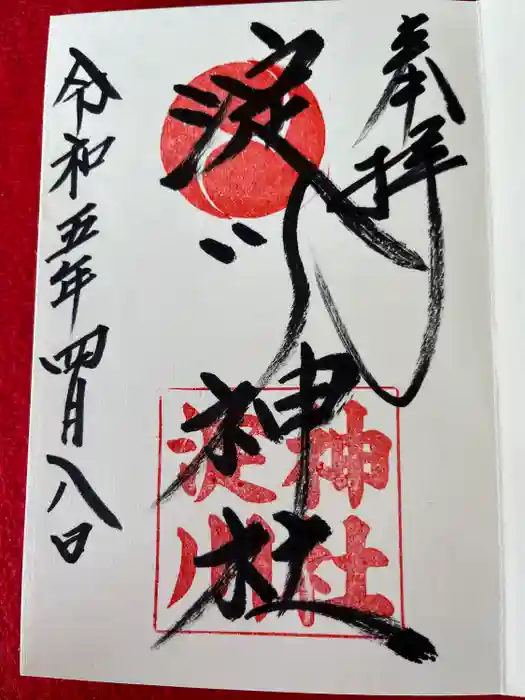 奉拝
淀川神社
神社
淀川
令和五年四月八日